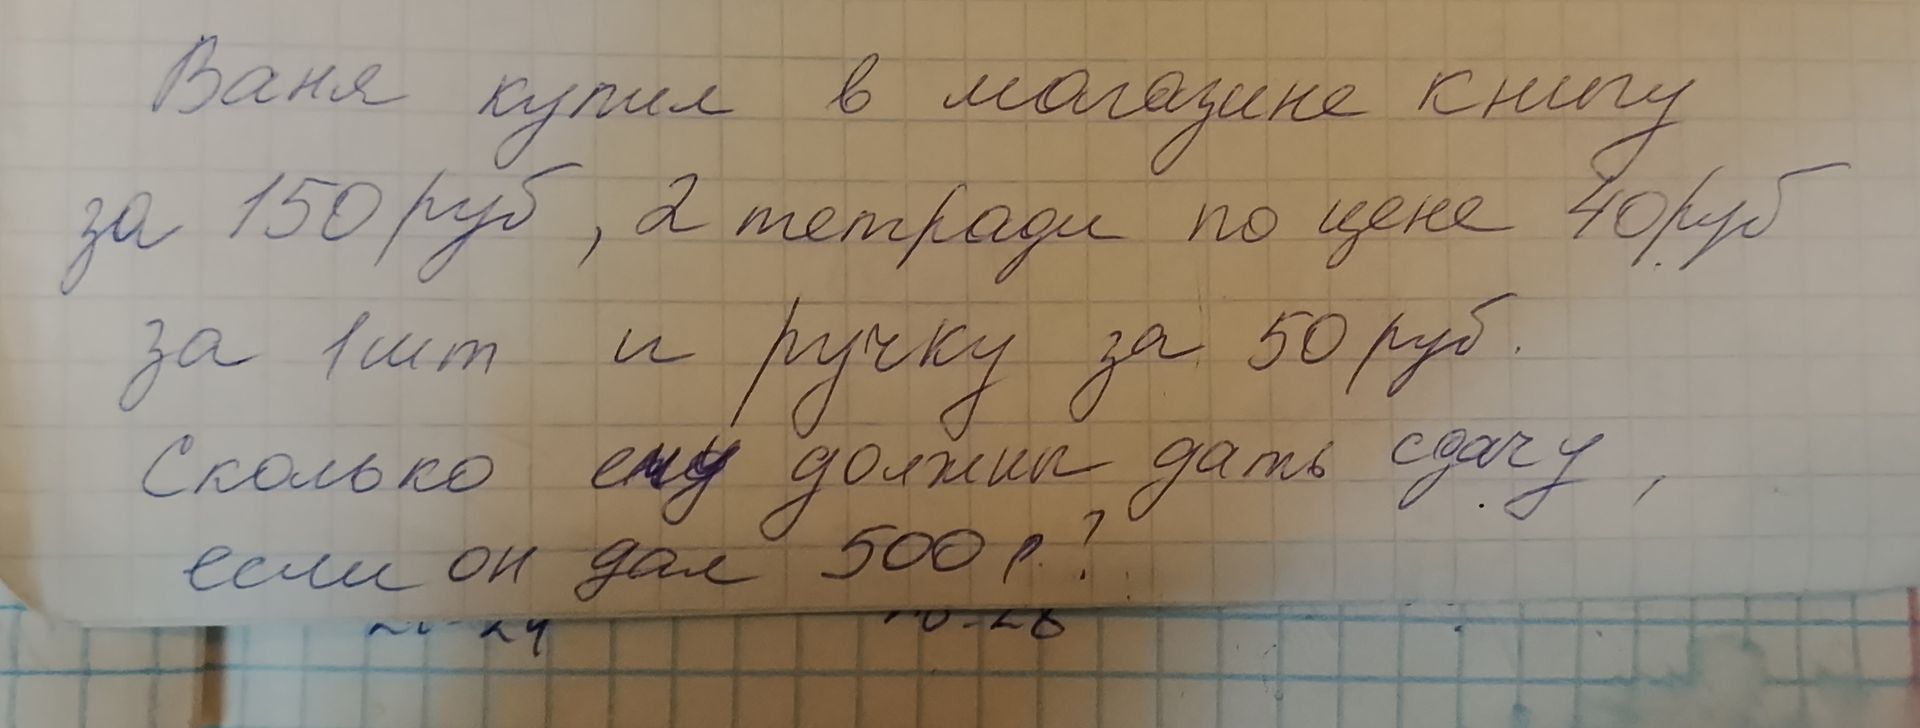 Ваня купил в магазине книгу
за 150 руб, 2 тетради по цене 40 руб
за 1 шт и ручку за 50 руб.
Сколько ему должны дать сдачу,
если он дал 500 р.?